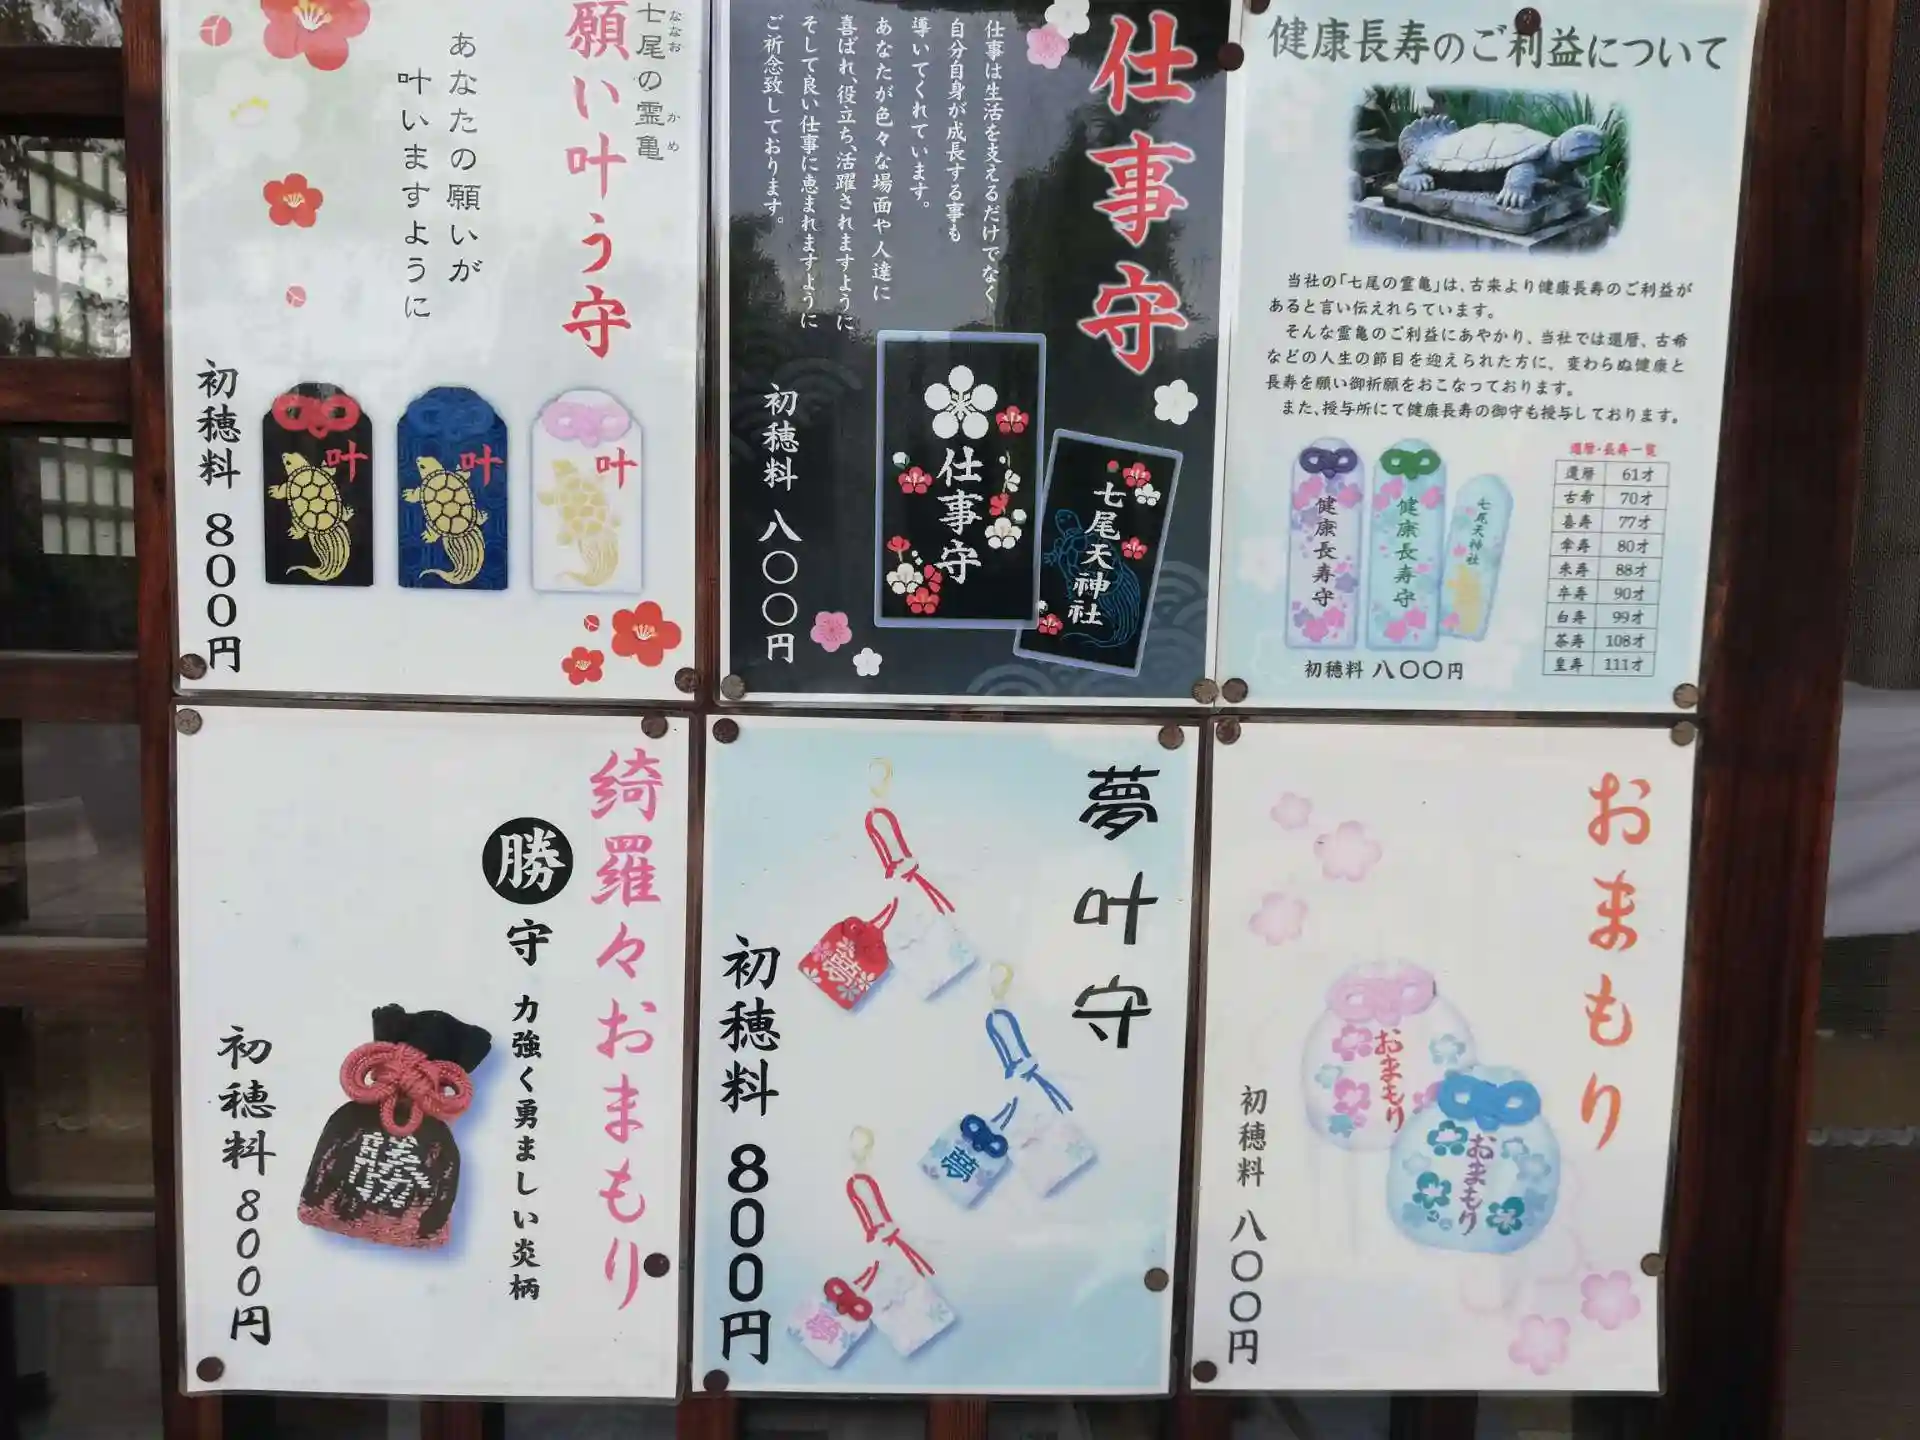 七尾の霊亀
ななお
かめ
願い叶う守
あなたの願いが
叶いますように
叶
叶
叶
初穂料 800円
仕事守
仕事は生活を支えるだけでなく
自分自身が成長する事も
導いてくれています。
あなたが色々な場面や人達に
喜ばれ、役立ち、活躍されますように
そして良い仕事に恵まれますように
ご祈念致しております。
仕事守
七尾天神社
初穂料 八〇〇円
健康長寿のご利益について
当社の「七尾の霊亀」は、古来より健康長寿のご利益が
あると言い伝えれらています。
そんな霊亀のご利益にあやかり、当社では還暦、古希
などの人生の節目を迎えられた方に、変わらぬ健康と
長寿を願い御祈願をおこなっております。
また、授与所にて健康長寿の御守も授与しております。
健康長寿守
健康長寿守
七尾天神社
初穂料 八〇〇円
還暦・長寿一覧
還暦 61才
古希 70才
喜寿 77才
傘寿 80才
米寿 88才
卒寿 90才
白寿 99才
茶寿 108才
皇寿 111才
綺羅々おまもり
勝守 力強く勇ましい炎柄
勝
初穂料 800円
夢叶守
夢
初穂料 800円
おまもり
おまもり
おまもり
初穂料 八〇〇円